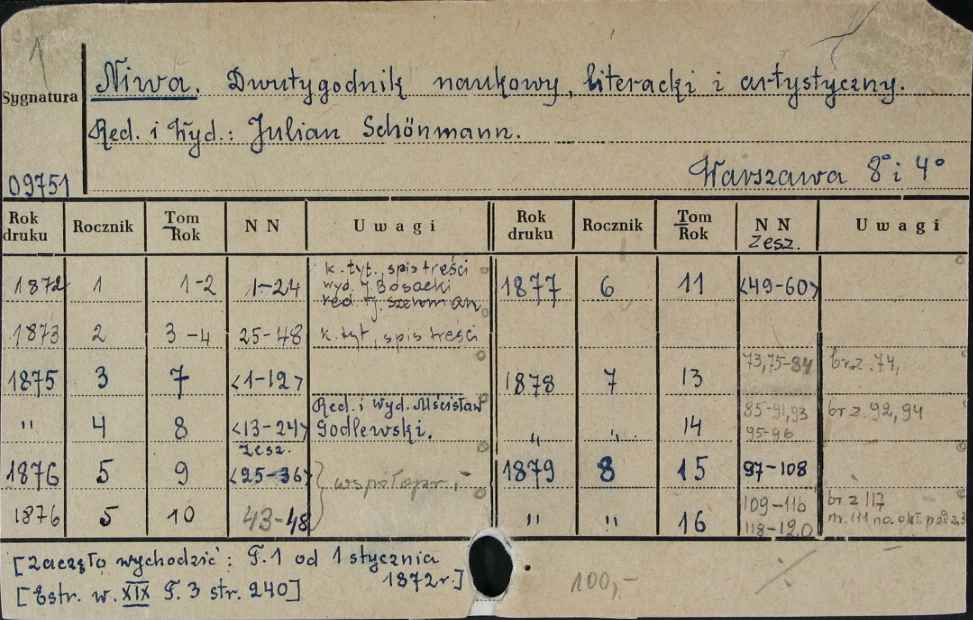 Sygnatura
Niwa. Dwutygodnik naukowy, literacki i artystyczny.
Red. i Wyd.: Julian Schönmann.
Warszawa 8° i 4°
09751
Rok druku Rocznik Tom Rok N N Uwagi Rok druku Rocznik Tom Rok N N Zesz. Uwagi
1872 1 1-2 1-24 k. tyt., spis treści
wyd. J. Bosacki
red. 1877 6 11 <49-60>
1873 2 3-4 25-48 k. tyt., spis treści
1875 3 7 <1-12> 1878 7 13 73,75-84 br z. 74,
" 4 8 <13-24> Red. i Wyd. Mścisław
Godlewski. " " 14 85-91,93
95-96 br z. 92, 94
1876 5 9 Zesz.
<25-36> współopr. 1879 8 15 97-108
1876 5 10 43-48 " " 16 109-116
118-120 br z 117
[Zaczęło wychodzić: T.1 od 1 stycznia
1872r.]
[Estr. w. XIX T. 3 str. 240]
100,-